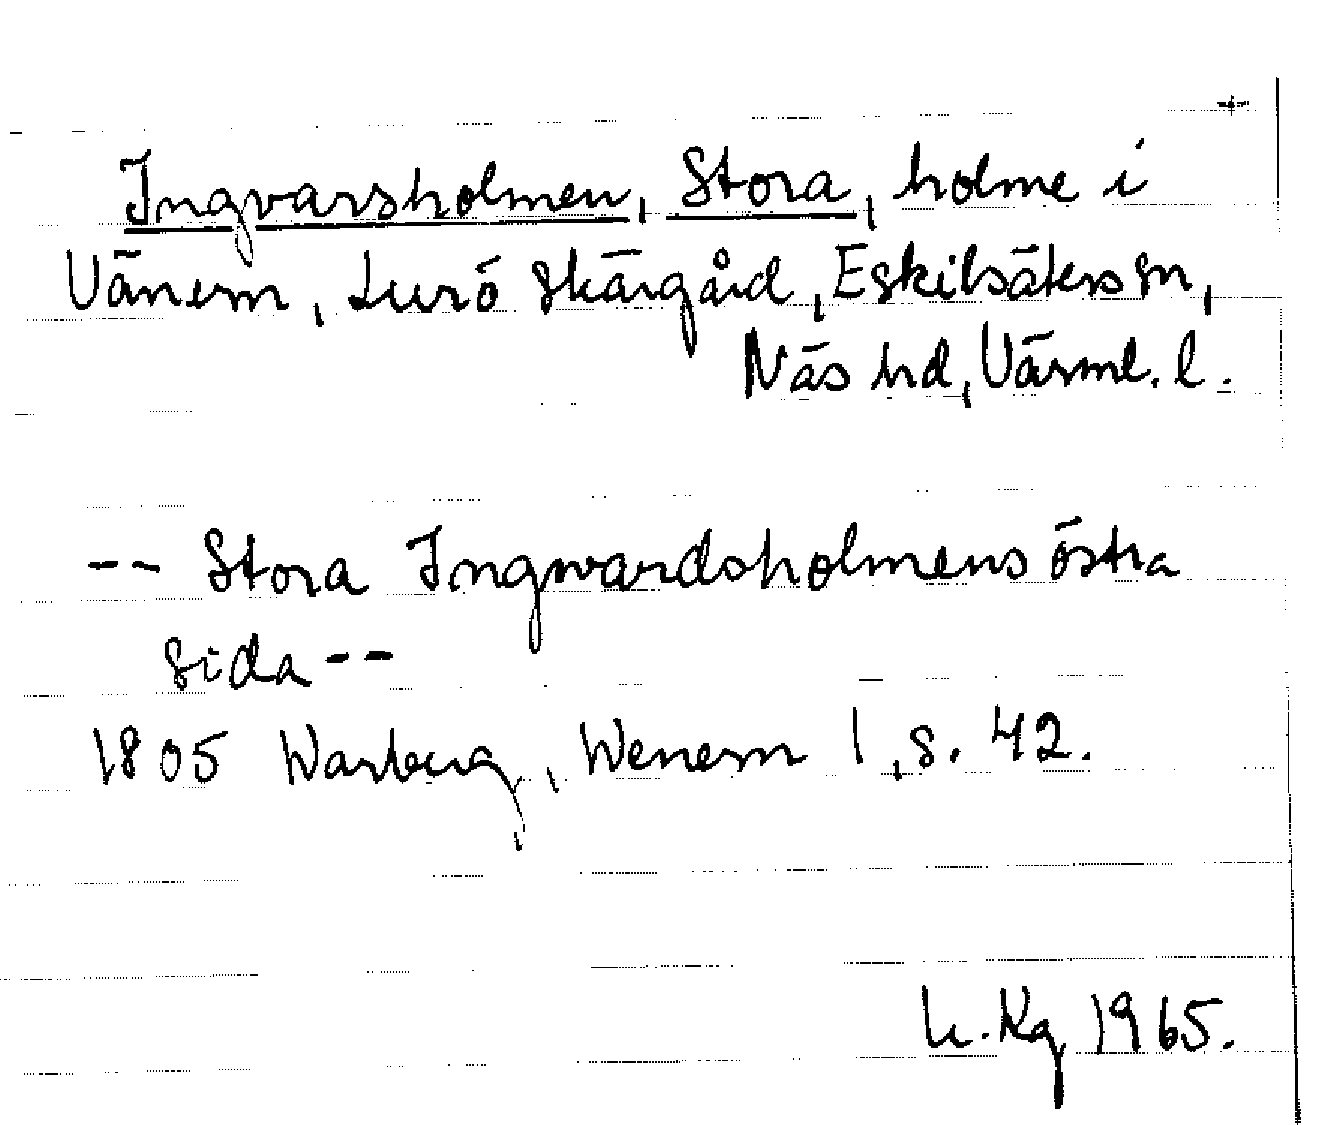 Ingvarsholmen, Stora, holme i
Vänern, Lurö skärgård, Eskilsäters sn,
Näs hd, Värml. l.
-- Stora Ingwardsholmens östra
sida --
1805 Warberg, Wenern 1, s. 42.
1965.